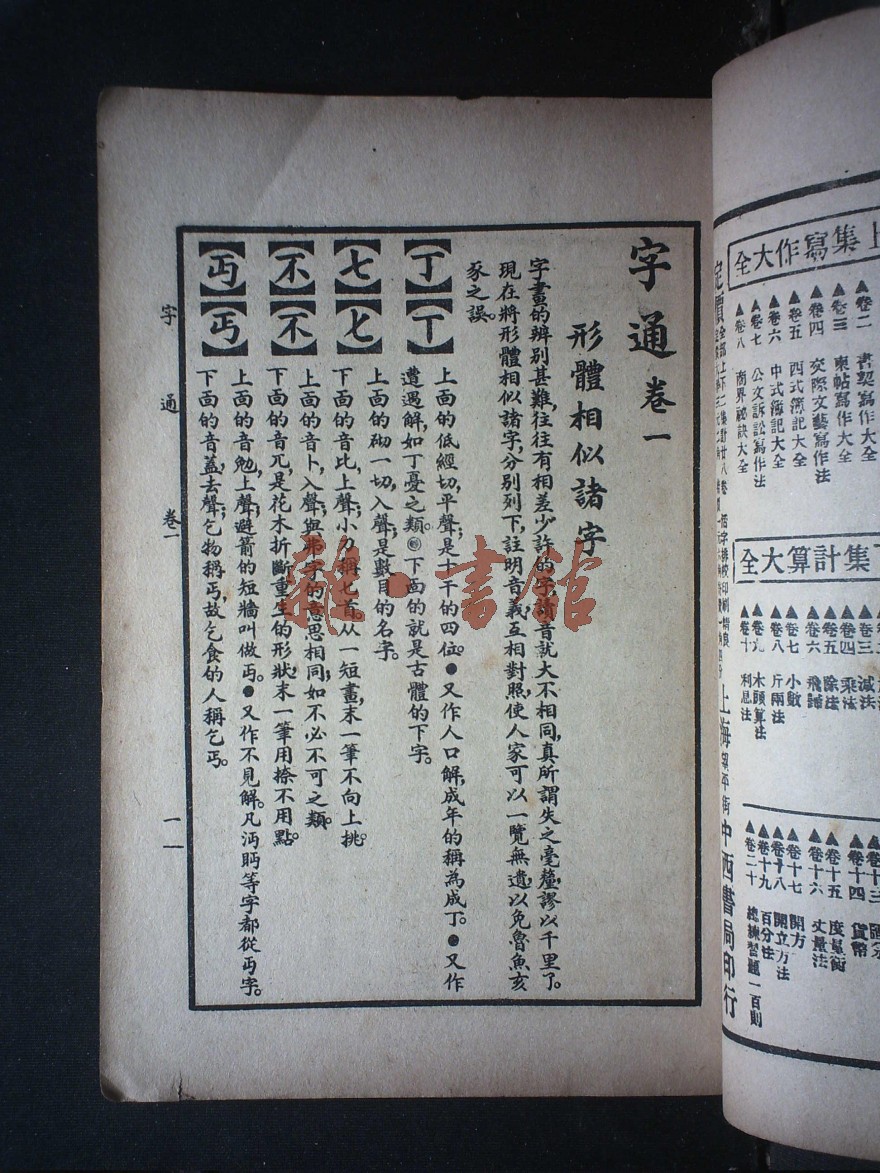 字通卷一
形體相似諸字
字畫的辨別甚難,往往有相差少許的字,讀音就大不相同,真所謂失之毫釐,謬以千里了。
現在將形體相似諸字,分別列下,註明音義,互相對照,使人家可以一覽無遺,以免魯魚亥
豕之誤。
【丁】【丅】
上面的低經切,平聲;是十干的四位。●又作人口解,成年的稱為成丁。●又作
遭遇解,如丁憂之類。◉下面的就是古體的下字。
【七】【七】
上面的砌一切,入聲;是數目的名字。
下面的音比,上聲;小刀稱七首。从一短畫,末一筆不向上挑。
【不】【不】
上面的音卜,入聲;與弗字的意思相同;如不必不可之類。
下面的音兀,是花木折斷重生的形狀,末一筆用捺不用點。
【丏】【丐】
上面的音勉,上聲;避箭的短牆叫做丏。●又作不見解。凡沔眄等字都從丏字。
下面的音蓋,去聲;乞物稱丐,故乞食的人稱乞丐。
字通 卷一 一
雜·書館
上集寫作大全
▲卷二 書契寫作大全
▲卷三 柬帖寫作大全
▲卷四 交際文藝寫作法
▲卷五 西式簿記大全
▲卷六 中式簿記大全
▲卷七 公文訴訟寫作法
▲卷八 商界祕訣大全
下集計算大全
▲卷三 減法
▲卷四 乘法
▲卷五 除法
▲卷六 飛歸
▲卷七 小數
▲卷八 斤兩法
▲卷九 木頭算法
▲卷十 利息法
▲卷十三
▲卷十四 貨幣
▲卷十五 度量衡
▲卷十六 丈量法
▲卷十七 開方
▲卷十八 開立方法
▲卷十九 百分法
▲卷二十 總練習題一百則
定價
上海望平街中西書局印行